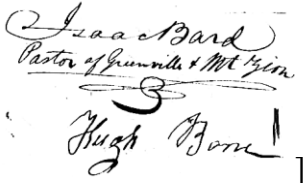 Isaac Bard
Pastor of Greenville & Mt Zion
3
Hugh Bone
]